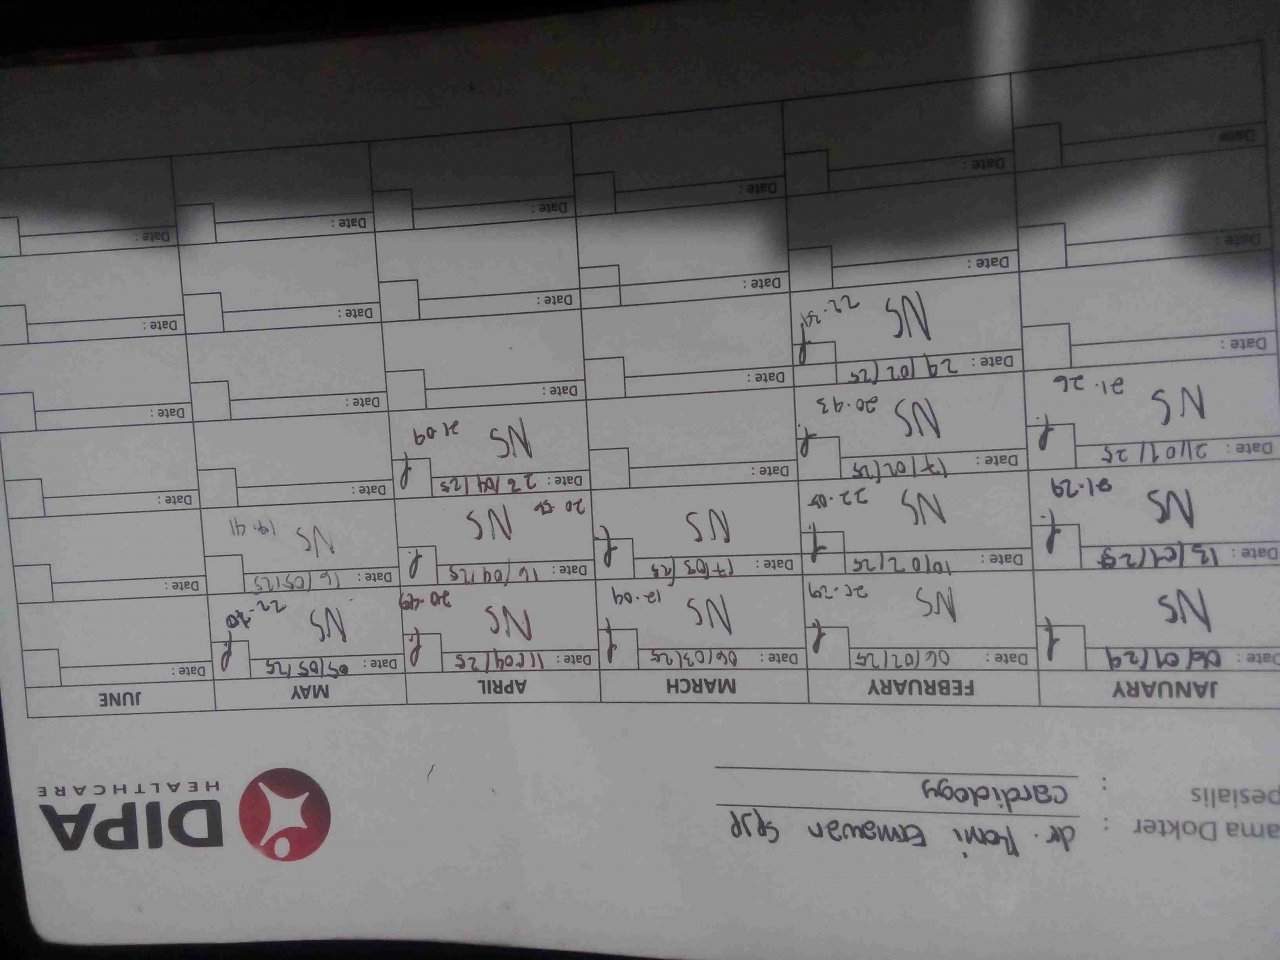 ama Dokter : dr. Roni Ermawan SpJP
pesialis : cardiology
DIPA
HEALTHCARE
JANUARY FEBRUARY MARCH APRIL MAY JUNE
Date : 06/01/29 Date : 06/02/25 Date : 06/03/25 Date : 11/04/25 Date : 05/05/25 Date :
NS NS 21.29 NS 12.09 NS 20.49 NS 22.20
Date : 13/01/25 Date : 10/02/25 Date : 17/03/25 Date : 16/04/25 Date : 16/05/25 Date :
NS 21.29 NS 22.05 NS NS 20.56 NS 19.41
Date : 21/01/25 Date : 17/02/25 Date : Date : 22/04/25 Date : Date :
NS 21.26 NS 20.43 NS 21.09
Date : Date : 24/02/25 Date : Date : Date : Date :
NS 22.31
Date : Date : Date : Date : Date : Date :
Date : Date : Date : Date : Date : Date :